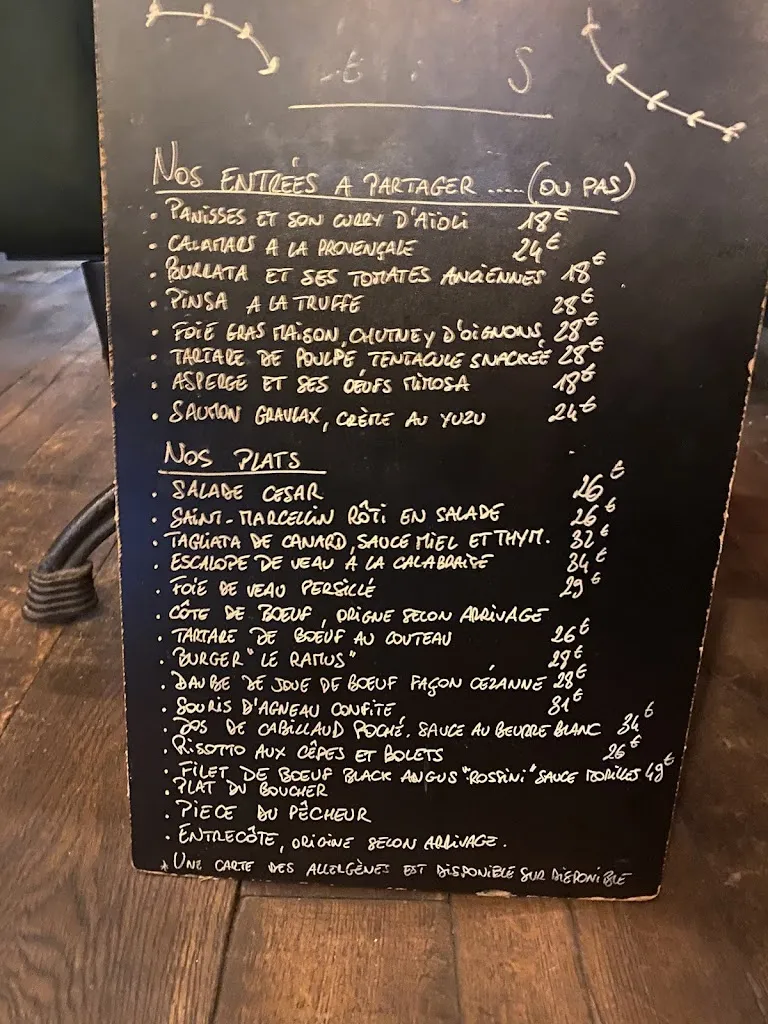 NOS ENTRÉES A PARTAGER ..... (OU PAS)
• PANISSES ET SON CURRY D'AÏOLI 18€
• CALAMARS A LA PROVENÇALE 24€
• BURRATA ET SES TOMATES ANCIENNES 18€
• PINSA A LA TRUFFE 28€
• FOIE GRAS MAISON, CHUTNEY D'OIGNONS 28€
• TARTARE DE POULPE, TENTACULE SNACKÉE 28€
• ASPERGE ET SES OEUFS MIMOSA 18€
• SAUMON GRAVLAX, CRÈME AU YUZU 24€
NOS PLATS
• SALADE CESAR 26€
• SAINT-MARCELLIN RÔTI EN SALADE 26€
• TAGLIATA DE CANARD, SAUCE MIEL ET THYM. 32€
• ESCALOPE DE VEAU À LA CALABRAISE 34€
• FOIE DE VEAU PERSILLÉ 29€
• CÔTE DE BOEUF, ORIGNE SELON ARRIVAGE
• TARTARE DE BOEUF AU COUTEAU 26€
• BURGER "LE RAMUS" 28€
• DAUBE DE JOUE DE BOEUF FAÇON CÉZANNE 28€
• SOURIS D'AGNEAU CONFITE 31€
• DOS DE CABILLAUD POCHÉ. SAUCE AU BEURRE BLANC 34€
• RISOTTO AUX CÊPES ET BOLETS 26€
• FILET DE BOEUF BLACK ANGUS "ROSSINI" SAUCE MORILLES 49€
• PLAT DU BOUCHER
• PIECE DU PÊCHEUR
• ENTRECÔTE, ORIGINE SELON ARRIVAGE.
* UNE CARTE DES ALLERGÈNES EST DISPONIBLE SUR DISPONIBLE